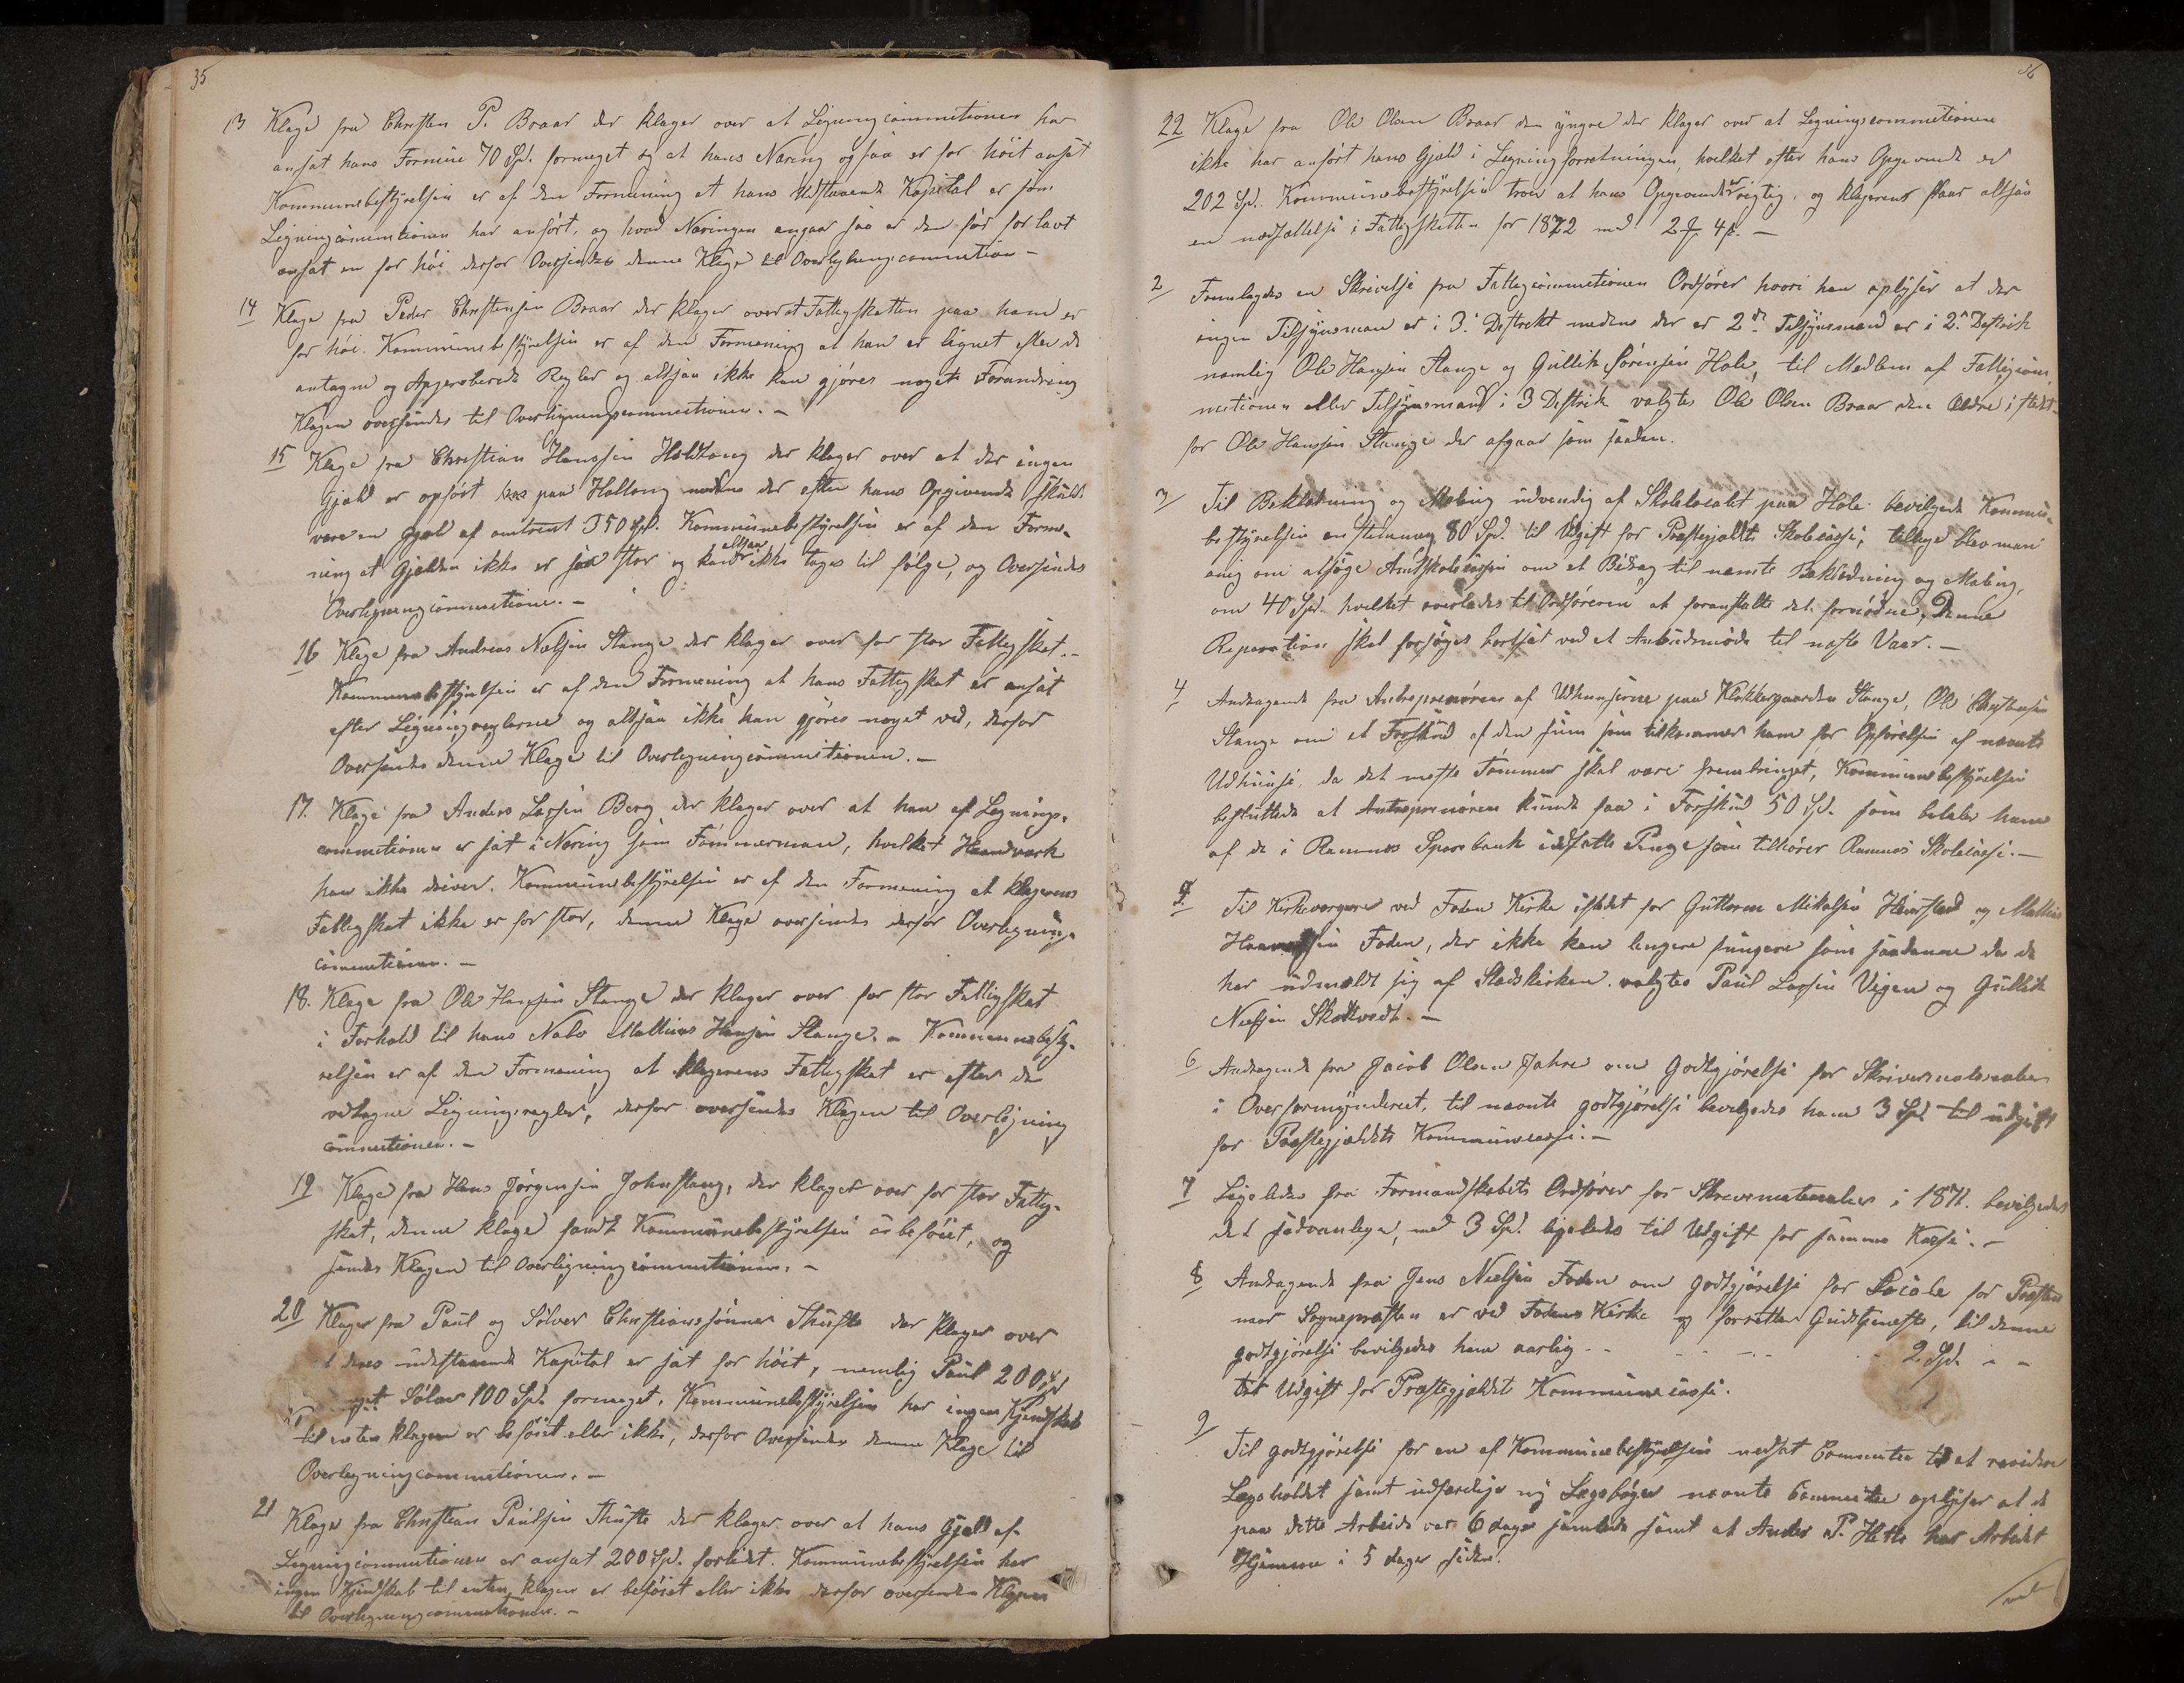 35
13 Klage fra Christen P. Braar der klager over at Ligningcommitionen har
ansat hans Formue 70 Spd. formeget og at hans Næring ogsaa er for höit ansat
Kommunebestyrelsen er af den Formening at hans Udstaaende Kapital er som
Ligningcommitionen har anfört, og hvad Næringen angaar saa er den för for lavt
ansat en for höi derfor Oversendes denne Klage til Overligningscommition –
14 Klage fra Peder Christensen Braar der klager over at Fattigskatten paa ham er
for höi. Kommunebestyrelsen er af den Formening at han er lignet efter de
antagne og Regler og altsaa ikke kan gjöres noget Forandring
Klagen oversendes til Overligningscommitionen. –
15 Klage fra Christian Hanssen Holtong der klager over at der ingen
Gjæld er opfört paa Holtong medens der efter hans Opgivende skulde
være en Gjæld af omtrent 350 Spd. Kommunebestyrelsen er af den Forme-
ning at Gjælden ikke er saa stor og kan altsaa ikke tages til fölge, og Oversendes
Overligningcommitionen. –
16 Klage fra Andreas Nilsen Stange der klager over for stor Fattigskat. –
Kommunebestyrelsen er af den Formening at hans Fattigskat er ansat
efter Ligningreglerne og altsaa ikke kan gjöres noget ved, derfor
Oversendes denne Klage til Overligningcommitionen. –
17. Klage fra Anders Larsen Berg der klager over at han af Lignings-
commitionen er sat i Næring som Tömmermand, hvilket Haandværk
han ikke driver. Kommunebestyrelsen er af den Formening at klagerens
Fattigskat ikke er for stor, denne Klage oversendes derfor Overligning-
commitionen. –
18. Klage fra Ole Hanssen Stange der klager over for stor Fattigskat
i Forhold til hans Nabo Mathias Hansen Stange. – Kommunebesty-
relsen er af den Formening at klagerens Fattigskat er efter de
vedtagne Ligningsregler, derfor oversendes Klagen til Overligning
commitionen. –
19 Klage fra Hans Jörgensen Johnstang, der klager over for stor Fattig-
skat, denne klage fandt Kommunebestyrelsen beföiet, og
sendes Klagen til Overligningcommitionen. –
20 Klager fra Paul og Sölver Christianssönner Thufte der klager over
at deres udestaaende Kapital er sat for höit, nemlig Paul 200 Spd
Sölver 100 Spd. formeget, Kommunebestyrelsen har ingen Kjendskab
til enten klagen er beföiet eller ikke, derfor Oversendes denne Klage til
Overligningcommitionen. –
21 Klage fra Christian Paulsen Thufte der klager over at hans Gjæld af
Ligningcommitionen er ansat 200 Spd. forlidet. Kommunebestyrelsen har
ingen Kjendskab til enten klagen er beföiet eller ikke derfor oversendes Klagen
til Overligningcommitionen. –
36
22 Klage fra Ole Olsen Braar den yngre der klager over at Ligningscommitionen
ikke har anfört hans Gjæld i Ligningforretningen, hvilket efter hans Opgivende er
202 Spd. Kommunebestyrelsen troer at hans Opgivende er rigtig, og klageren faar altsaa
en nedsættelse i Fattigskatten for 1872 med 2 4 s. –
2 Fremlagdes en Skrivelse fra Fattigcommitionens Ordförer hvori han oplyser at der
ingen Tilsynsmand er i 3. Destrikt medens der er 2de Tilsynsmænd er i 2. Destrik
nemlig Ole Hansen Stange og Gullik Sörensen Hole, til Medlem af Fattigcom-
mitionen eller Tilsynsmand i 3 Destrik valgtes Ole Olsen Braar den Ældre i stedet
for Ole Hanssen Stange der afgaar som saadan.
3 Til Beklædning og Maling udvendig af Skolelocalet paa Hole bevilgede Kommu-
bestyrelsen enstemmig 80 Spd. til Udgift for Præstegjældets Skolecasse, tillige blev man
enig om at söge Amtskolecassen om et Bidrag til nevnte Beklædning og Maling,
om 40 Spd. hvilket overlades til Ordföreren at foranstalte det fornödne, Denne
Reparation skal forsöges bortsat ved et Anbudsmöde til næste Vaar. –
4 Andragende fra Entreprenören af Udhusene paa Klokkergaarden Stange, Ole Christensen
Stange om et Forskud af den Sum som tilkommer ham for Opförelsen af nævnte
Udhuuse, da det meste Tömmer skal være frembringet, Kommunebestyrelsen
besluttede at Antreprenören kunde faa i Forskud 50 Spd. som betales ham
af de i Ramnes Sparebank indsatte Penge som tilhörer Ramnes Skolecasse. –
Til Kirkeværger ved Foden Kirke istedet for Guttorm Mikalsen Heierstad og Mathias
Foden, der ikke kan lengere fungere som saadanne da de
har udmeldt sig af Stadskirken valgtes Paul Larsen Vegen og Gullik
Nielsen . –
6 Andragende fra Jacob Olsen Jahre om Godtgjörelse for Skrivermaterialier
i Overformynderiet, til nævnte godtgjörelse bevilgedes ham 3 Spd til udgift
for Præstegjældets Kommunecasse. –
7 Ligeledes fra Formandskabets Ordförer for Skrivematerialier i 1871. bevilgedes
det sædvanlige, med 3 Spd. ligeledes til Udgift for samme Kasse. –
8 Andragende fra Jens Nielsen Foden om godtgjörelse for Locale for Præsten
naar Sognepræsten er ved Fodens Kirke og forretter Gudstjeneste, til denne
godtgjörelse bevilgedes ham aarlig – – – – – 2 Spd. – –
til Udgift for Præstegjældets Kommunecasse.
9 Til godtgjörelse for en af Kommunebestyrelsen nedsat Committee til at revidere
Lægeholdet samt udfærdige ny Lægeböger nævnte Committee oplyser at de
paa dette Arbeide var 6 dage samlede samt at Anders P. har Arbeidet
Hjemme i 5 dager siden.